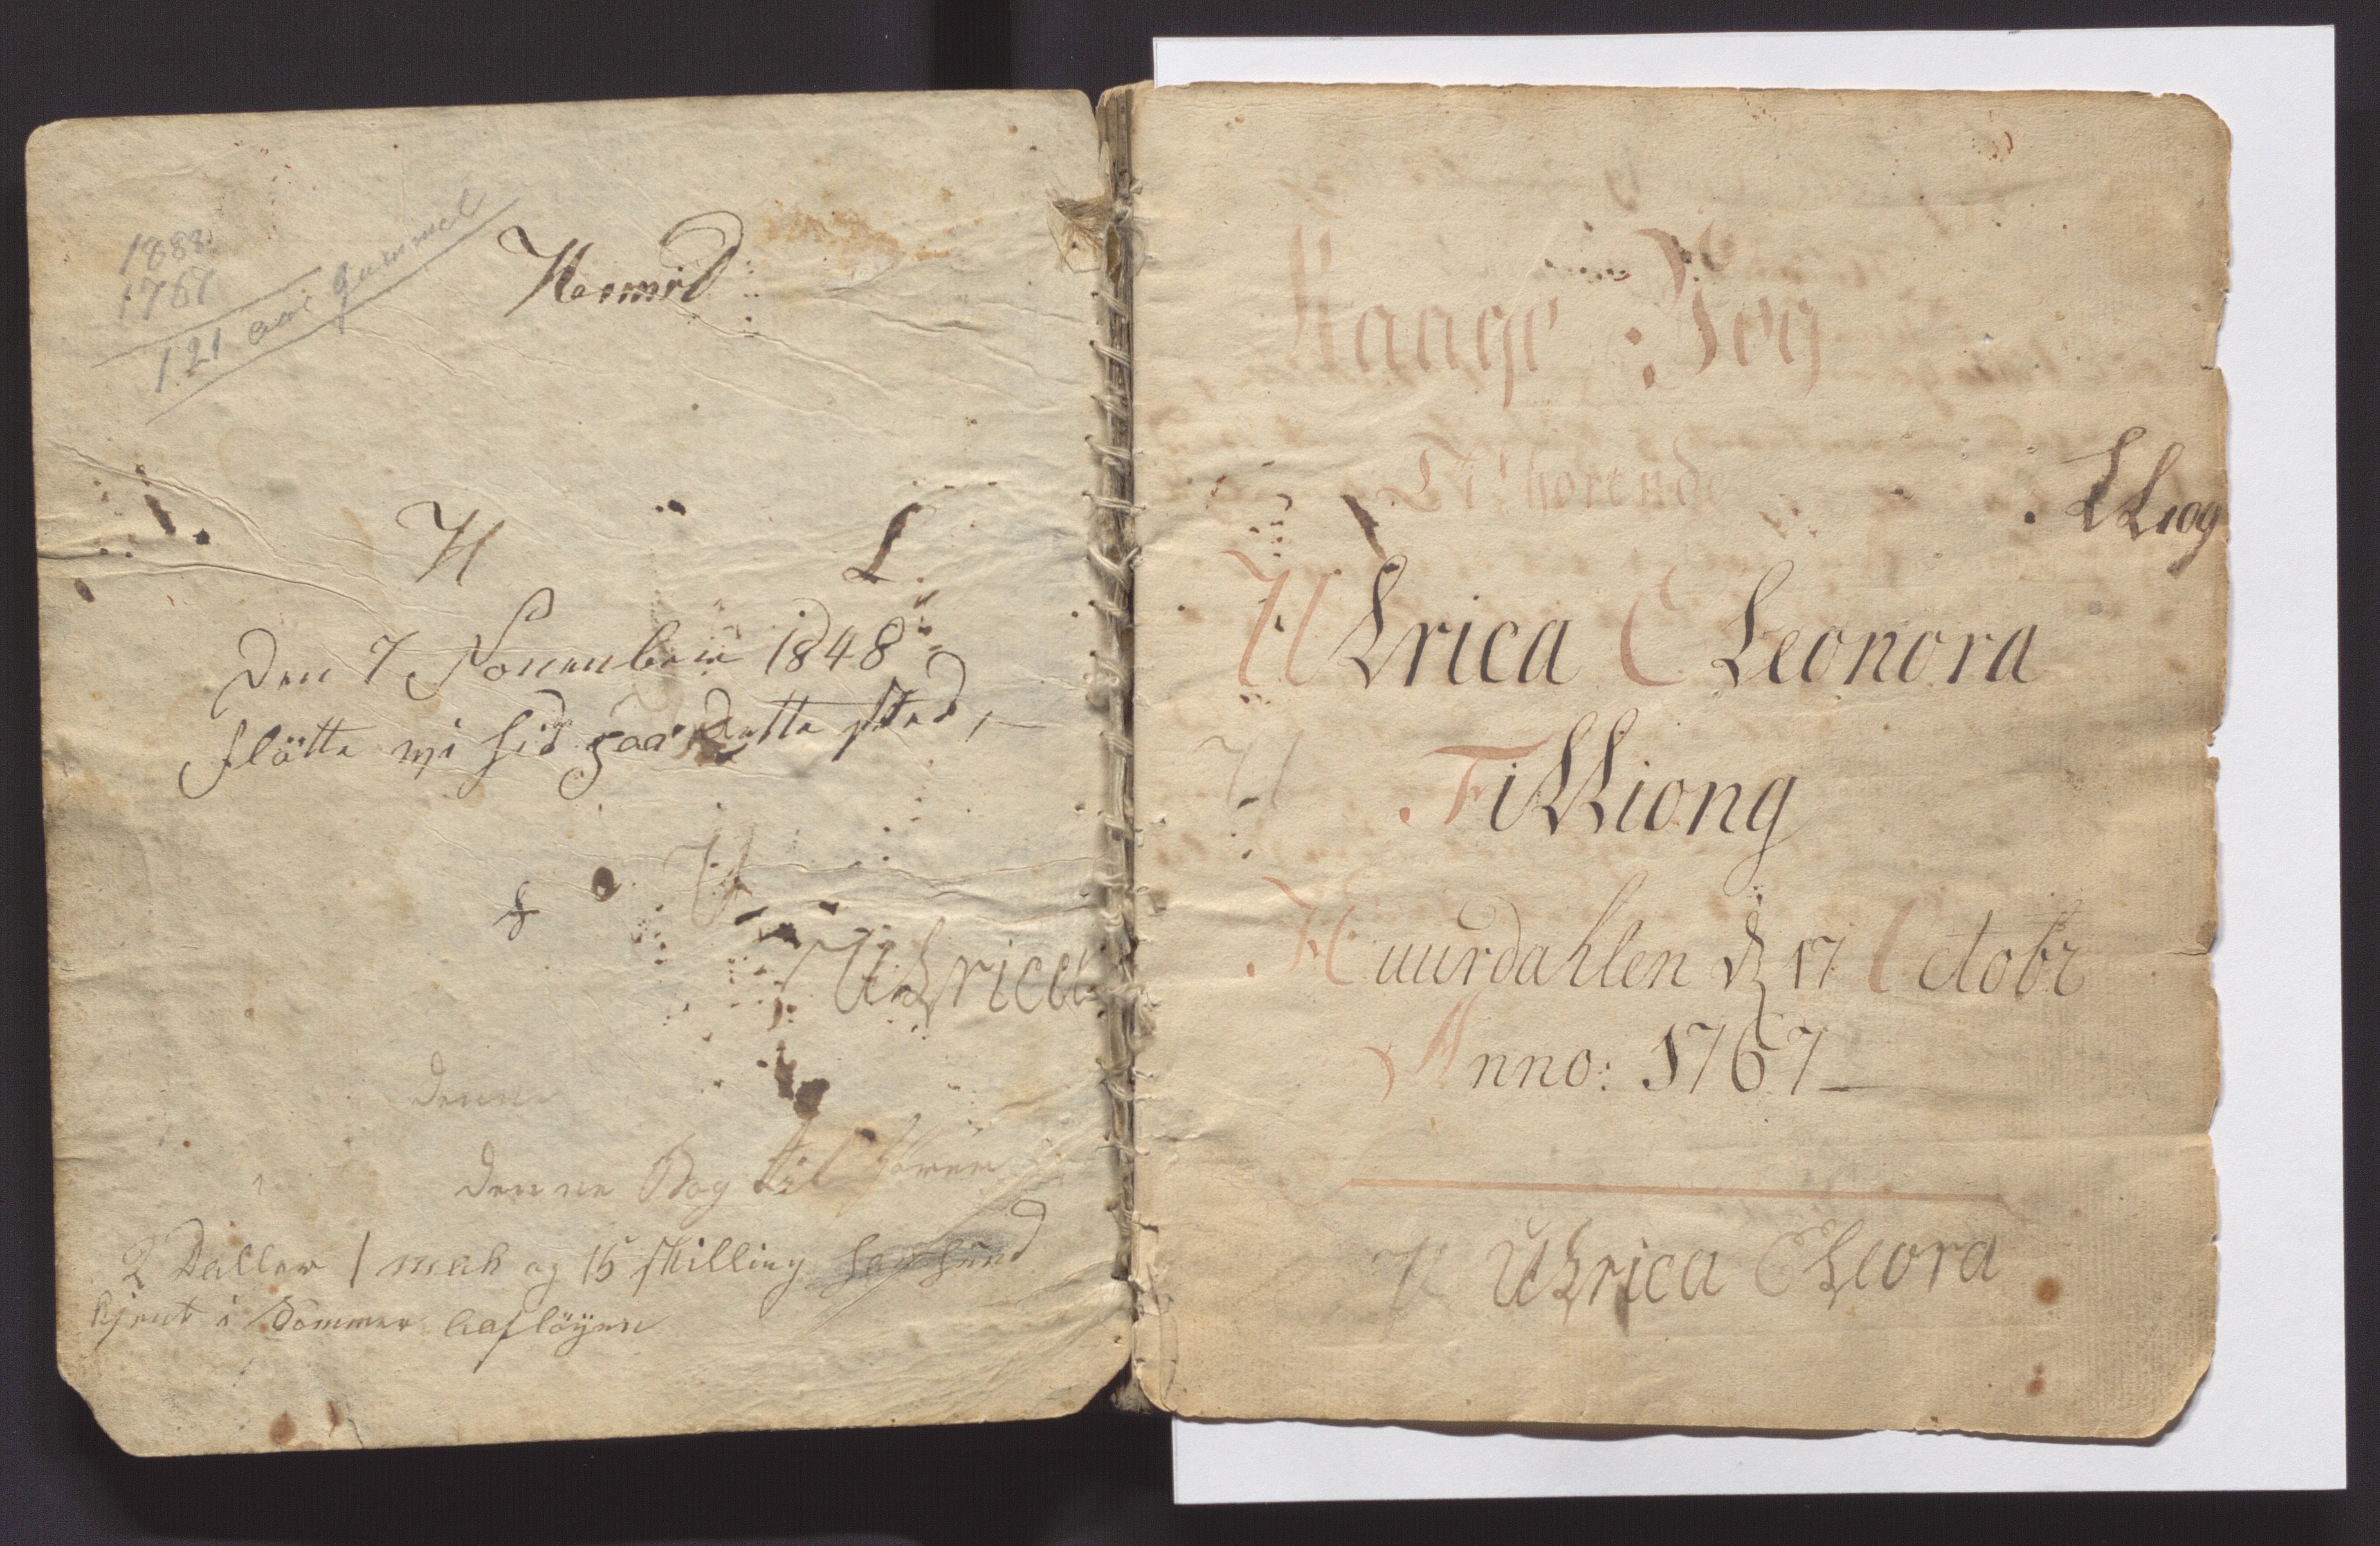 1888
1767
121 aar gammel
Hermed
H L
Den 7 November 1848
flötte wi hid paa dette sted,
H
Ulrica
Denne
Denne Bog til hörer
2 Daller 1 mark og 15 skilling
tjent i Sommer
Kaage Bog
Tilhörende
LLiog
Ulrica Eleonora
U Filliong
Huurdahlen d 17 Octobr
Anno: 1767
U Ulrica Eleora